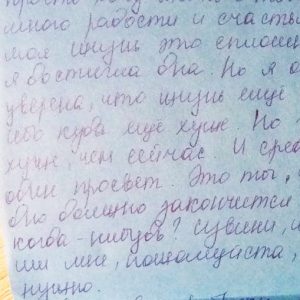 много радости и счастья
моя жизнь это сплошн
я достигла дна. Но я о
уверена, что жизнь ещё
ибо куда ещё хуже. Но
хуже, чем сейчас. И сре
один просвет. Это ты,
должно закончится
когда-нибудь? Извини,
ши мне, пожалуйста,
нужно.